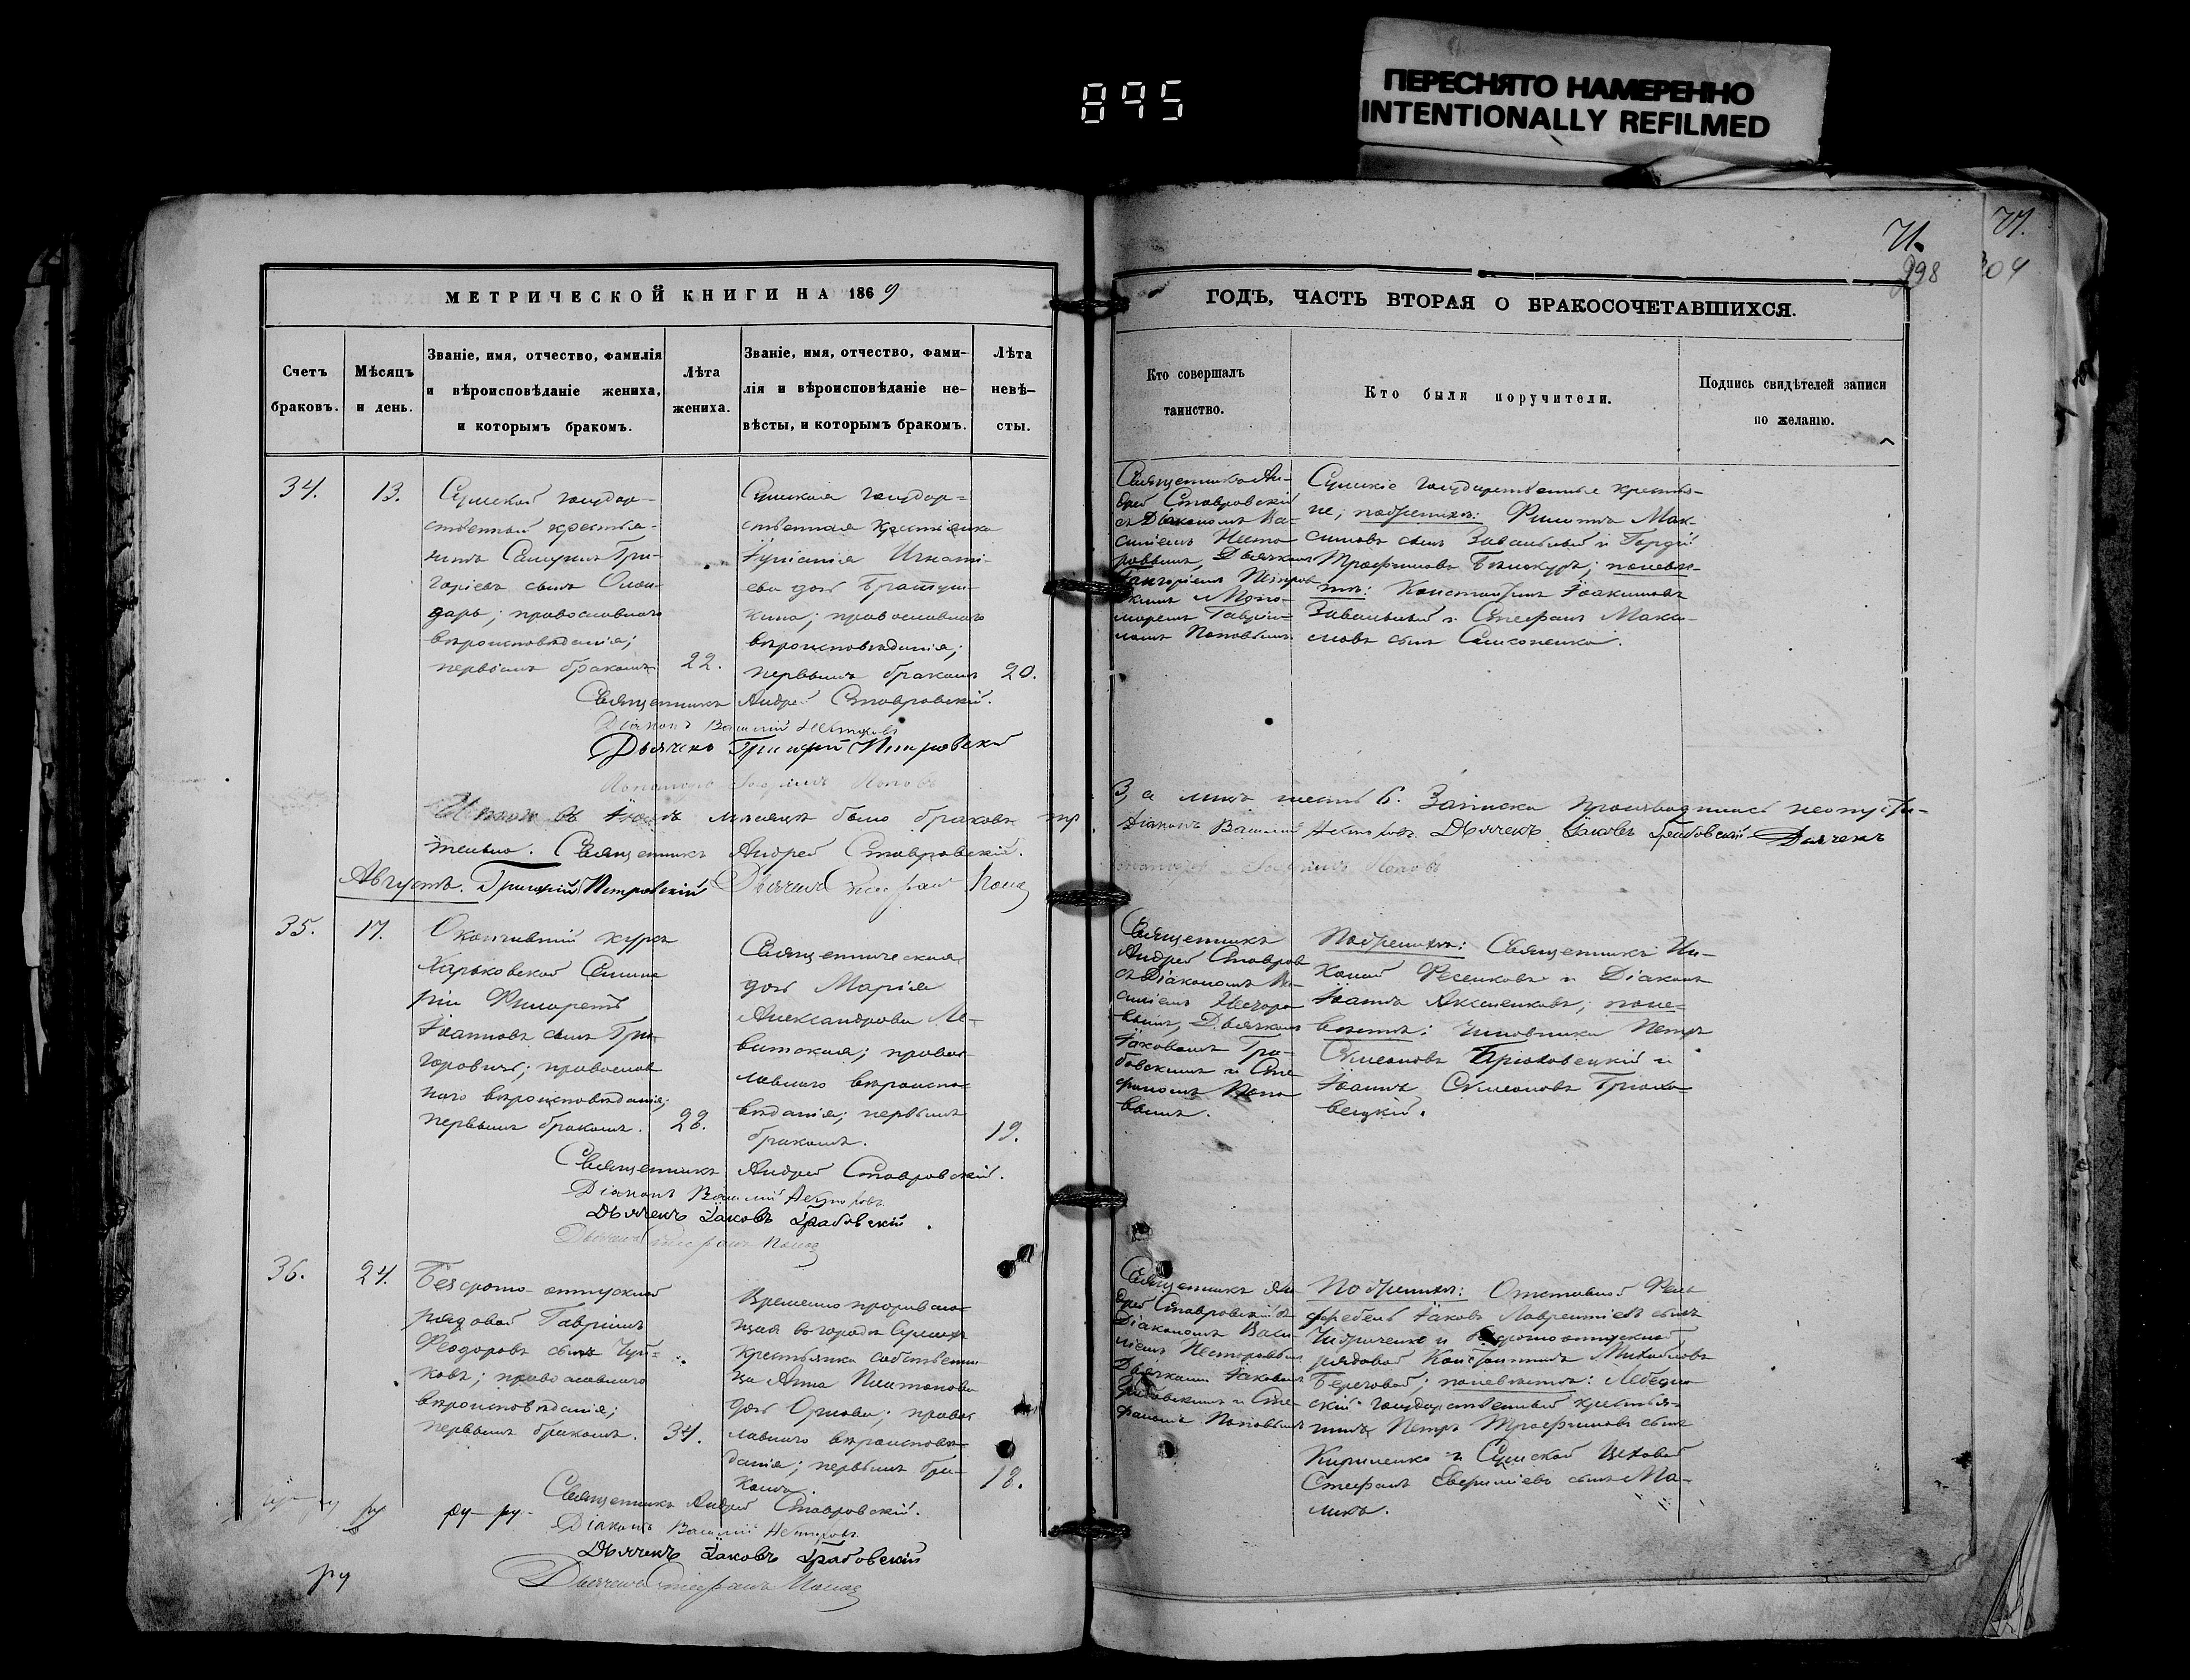 895
ПЕРЕСНЯТО НАМЕРЕННО
INTENTIONALLY REFILMED
71.
71.
298
304
МЕТРИЧЕСКОЙ КНИГИ НА 1869
Счетъ
браковъ.
Мѣсяцъ
и день.
Званіе, имя, отчество, фамилія
и вѣроисповѣданіе жениха,
и которымъ бракомъ.
Лѣта
жениха.
Званіе, имя, отчество, фами-
лія и вѣроисповѣданіе не-
вѣсты, и которымъ бракомъ.
Лѣта
невѣ-
сты.
ГОДЪ, ЧАСТЬ ВТОРАЯ О БРАКОСОЧЕТАВШИХСЯ.
Кто совершалъ
таинство.
Кто были поручители.
Подпись свидѣтелей записи
по желанію.
34.
13.
Сумской государ-
ственный крестья-
нинъ Самуилъ Гри-
горіевъ сынъ
православнаго
вѣроисповѣданія;
первымъ бракомъ
22.
Сумская государ-
ственная крестьянка
Іуліанія Игнаті-
ева дочь
православнаго
вѣроисповѣданія;
первымъ бракомъ
20.
Священникъ Ан-
дрей Ставровскій
съ Діакономъ Ва-
силіемъ Несто-
ровымъ, Дьячкомъ
Григоріемъ Петров-
скимъ и Поно-
маремъ Гавріи-
ломъ Поповымъ.
Сумскіе государственные крестья-
не; по женихѣ: Филиппъ Мак-
симовъ сынъ и Гордій
Трофимовъ Бѣлокуръ; по невѣс-
тѣ: Константинъ Іоакимовъ
и Стефанъ Макси-
мовъ сынъ Симоненко.
Священникъ Андрей Ставровскій.
Діаконъ Василій Несторовъ
Дьячекъ Григорій Петровскій
Пономарь Гавріилъ Поповъ
Итого въ мѣсяцѣ было браковъ
За шесть 6. Записка производилась неопусти-
тельно. Священникъ Андрей Ставровскій.
Діаконъ Василій Несторовъ. Дьячекъ Іаковъ Грабовскій Дьячекъ
Григорій Петровскій Дьячекъ Стефанъ Попов
Пономарь Гавріилъ Поповъ
Августъ.
35.
17.
Окончившій курсъ
Харьковской Семина
ріи Филаретъ
Іоанновъ сынъ Гри-
горовичъ; православ
наго вѣроисповѣданія;
первымъ бракомъ.
28.
Священническая
дочь Марія
Александрова Ле-
витская; правос-
лавнаго вѣроиспо-
вѣданія; первымъ
бракомъ.
19.
Священникъ
Андрей Ставров
съ Діакономъ Ва-
силіемъ Несторо-
вымъ, Дьячками
Іаковомъ Гра-
бовскимъ и Сте
фаномъ Попо
вымъ.
По женихѣ: Священникъ Ни-
колай Фесенковъ и Діаконъ
Іоаннъ Аксененковъ; по не-
вѣстѣ: Чиновники Петръ
Симеоновъ Брюховецкій и
Іоаннъ Симеоновъ Брюхо-
вецкій.
Священникъ Андрей Ставровскій.
Діаконъ Василій Несторовъ
Дьячекъ Іаковъ Грабовскій.
Дьячекъ Стефанъ Попов
36.
24.
Безсрочно-отпускной
рядовой Гавріилъ
Ѳеодоровъ сынъ
православнаго
вѣроисповѣданія;
первымъ бракомъ.
34.
Временно прожива-
щая въ городѣ Сумахъ
крестьянка собствен
ца Анна Платонова
дочь Орлова; правос
лавнаго вѣроисповѣ-
данія; первымъ бра-
комъ.
18.
Священникъ Ан
дрей Ставровскій съ
Діакономъ Васи-
ліемъ Несторовымъ
Дьячками Іаковомъ
Грабовскимъ и Сте
фаномъ Поповымъ
По женихѣ: Отставной Фель
дфебель Іаковъ Лаврентіевъ сынъ
и безсрочноотпускной
рядовой Константинъ Михайловъ
Береговой; по невѣстѣ: Лебедин
скій государственный крестья-
нинъ Петръ Трофимовъ сынъ
Кириленко и Сумской цеховой
Стефанъ сынъ Ма-
ликъ.
Священникъ Андрей Ставровскій.
Діаконъ Василій Несторовъ
Дьячекъ Іаковъ Грабовскій
Дьячекъ Стефанъ Попов
ру ру-ру-
ру